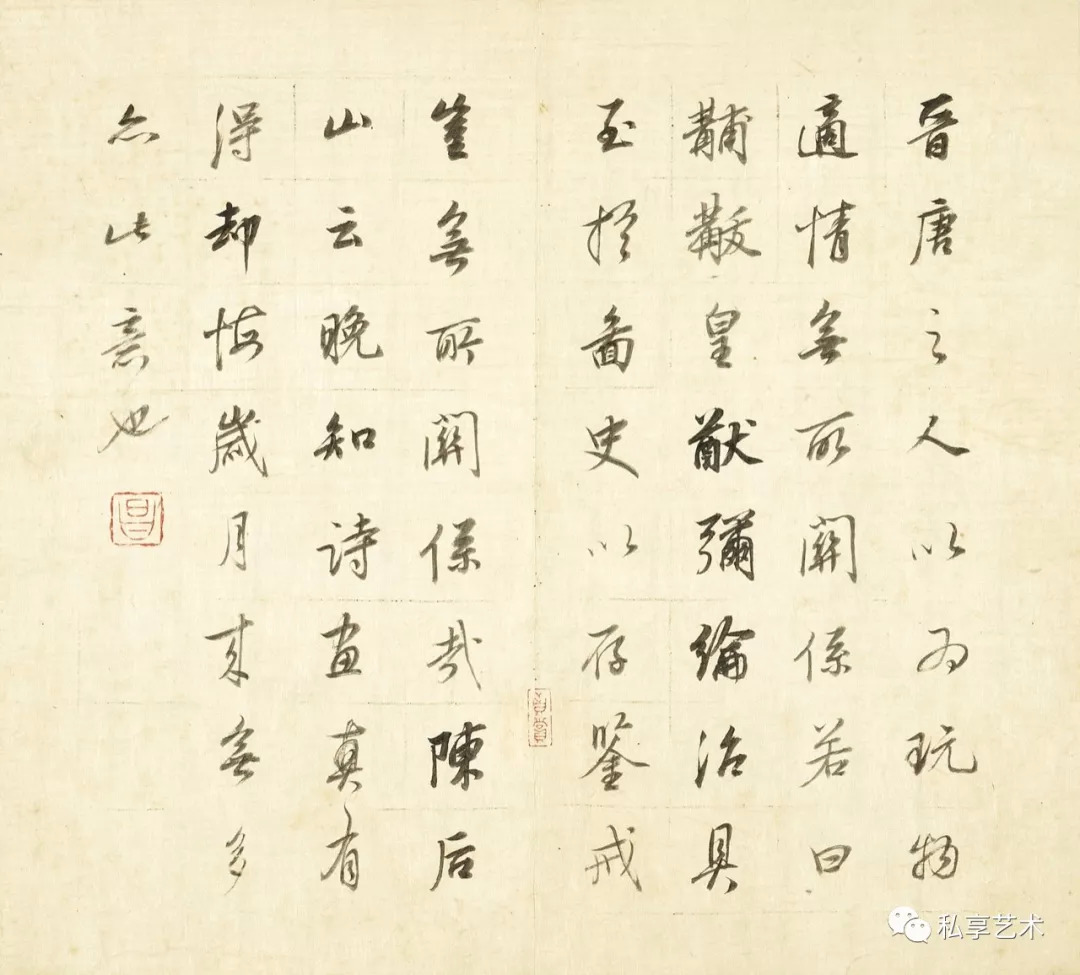 晉唐之人以為玩物
適情無所關係若曰
黼黻皇猷彌綸治具
至於圖史以存鑒戒
豈無所關係哉陳后
山云晚知詩畫真有
得却悔歲月來無多
亦此意也
私享艺术